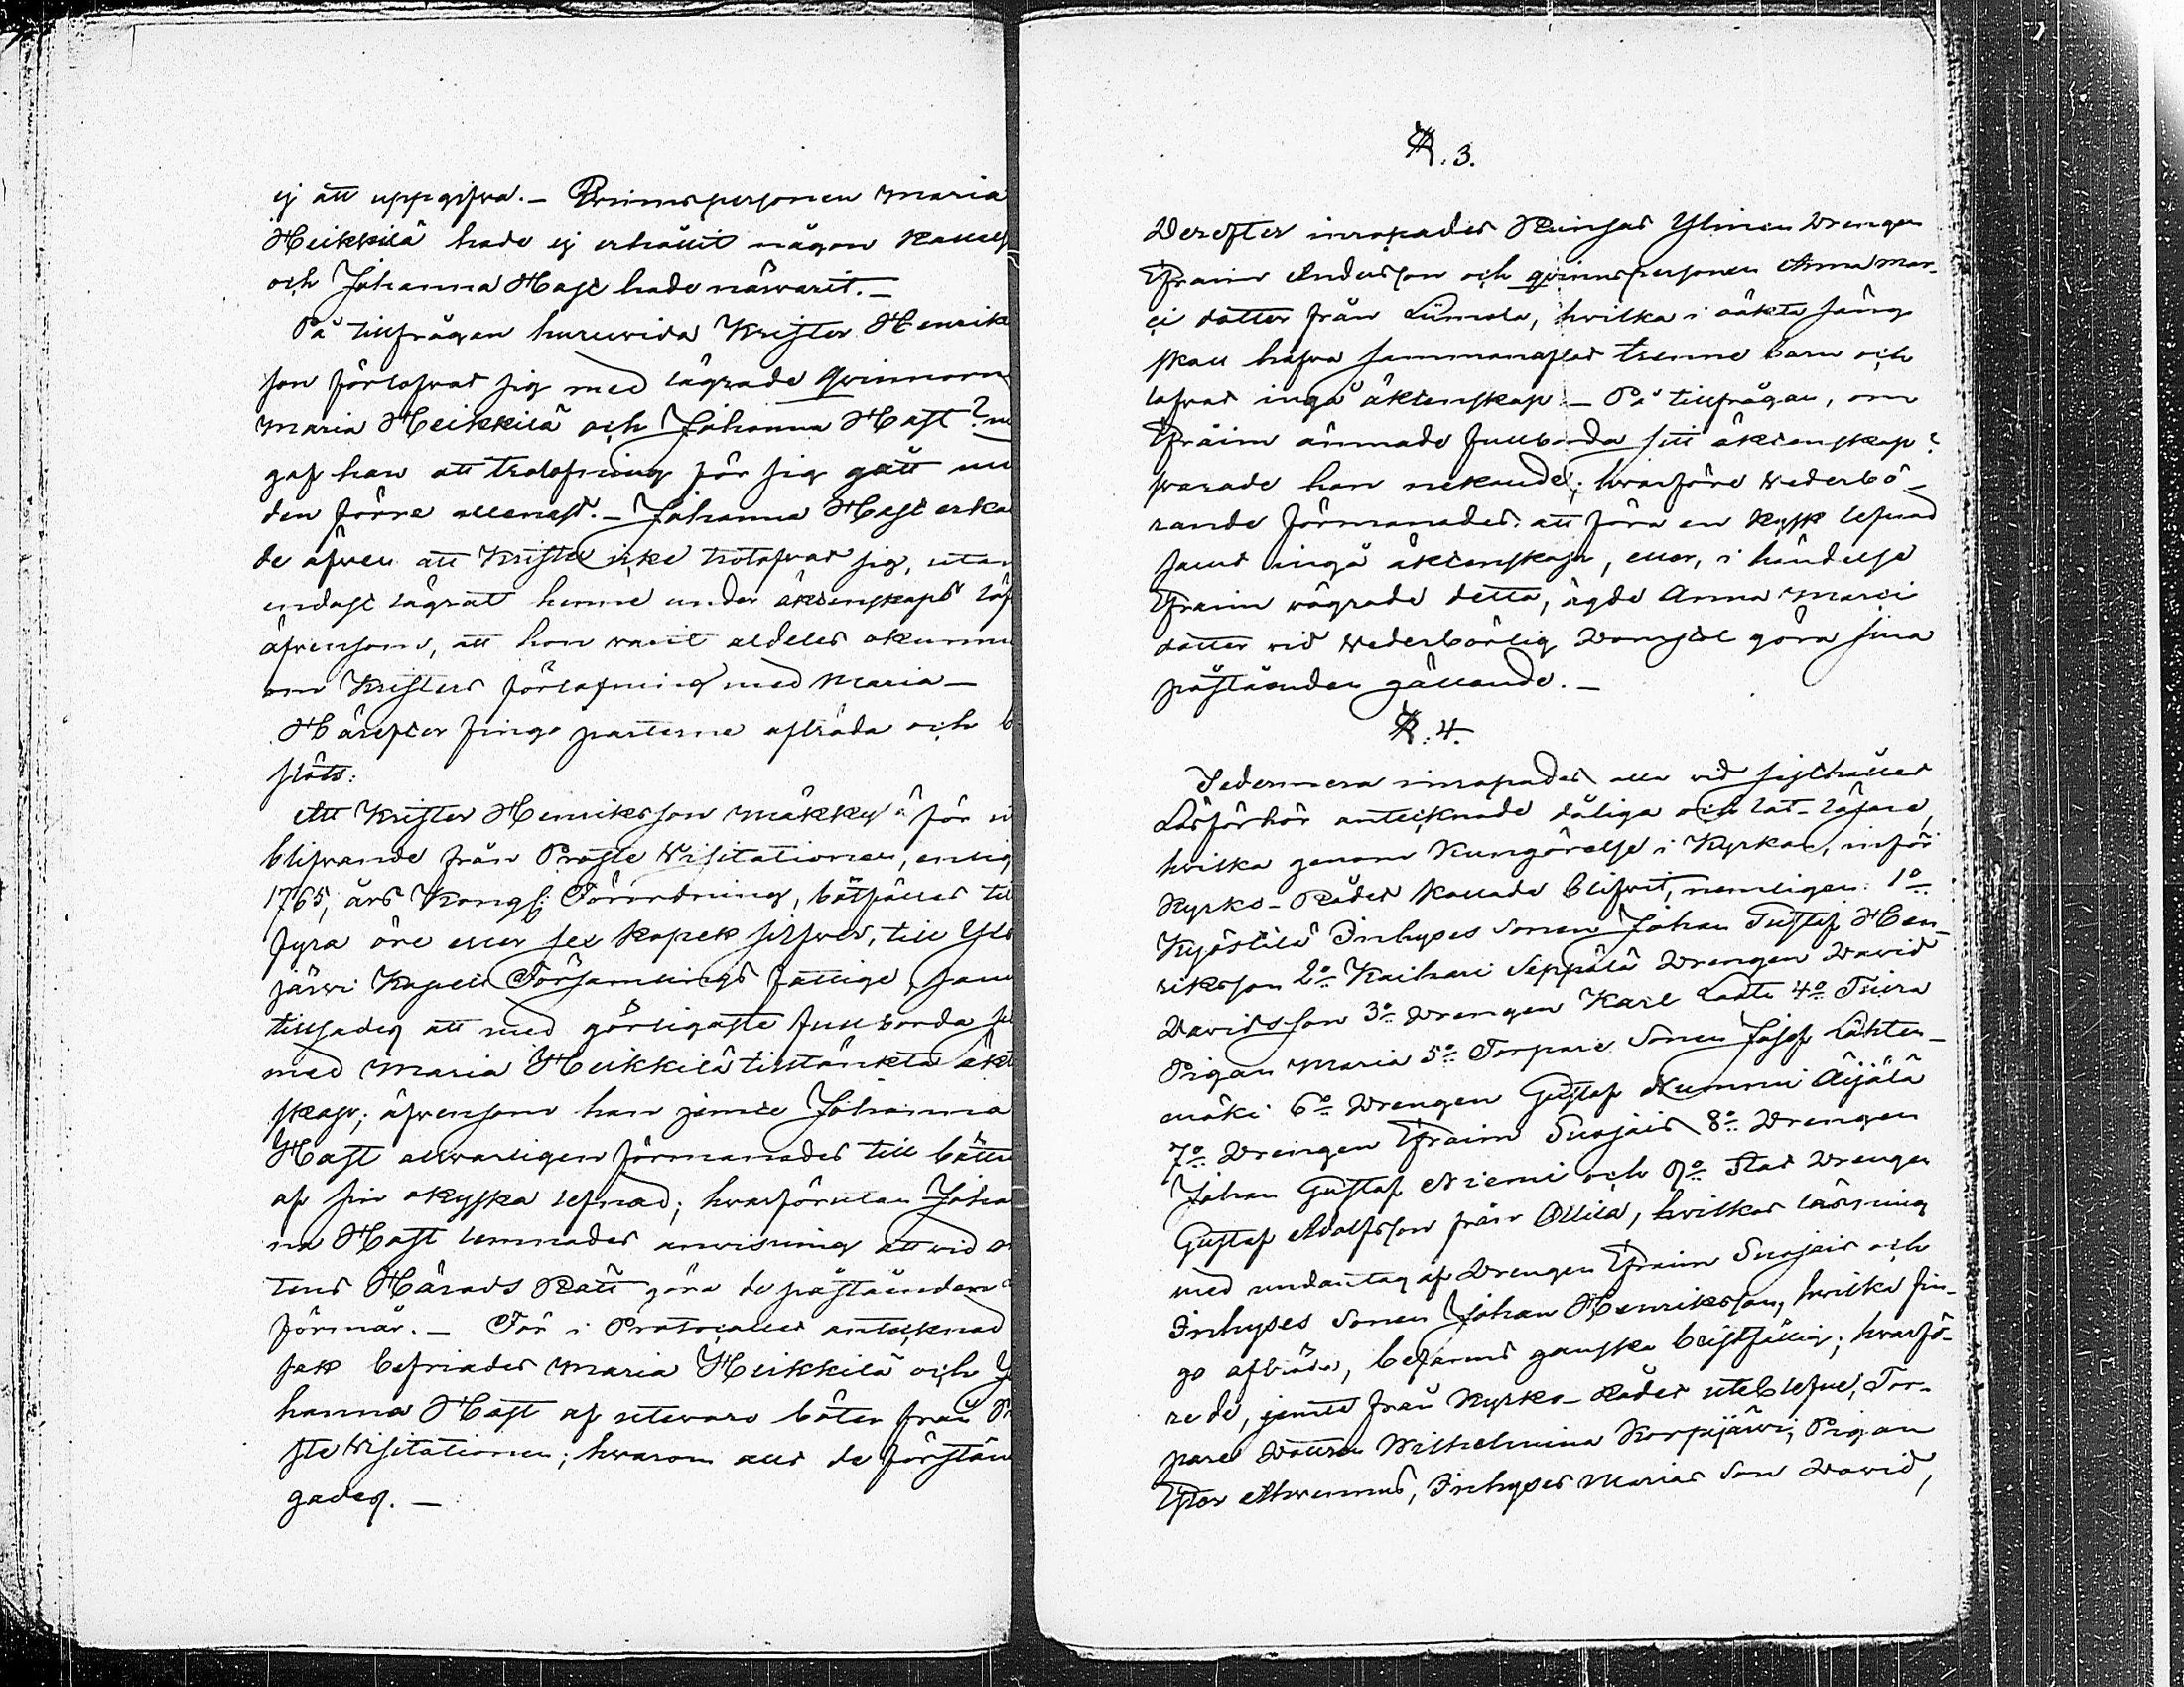 ej att uppgifva. – Qvinnspersonen Maria
Heikkilä hade ej erhållit någon Kallels
och Johanna Hast hade närvarit. –
På tillfrågan huruvida Krister Henrik
son förlofvat sig med lägrade Qvinnorn
Maria Heikkilä och Johanna Hast?
gaf han att trolofning för sig gått
den förre allenast. – Johanna Hast erka
de äfven att Krister icke trolofvat sig, utan
endast lägrat henne under äktenskaps löf
äfvensom, att hon varit aldeles okunni
om Kristers förlofning med Maria –
Härefter fingo parterne afträda och b
slöts:
Att Krister Henriksson Mäkkylä för
blifvande från Proste Visitationen, enlig
1765 års Kongl: Förordning, bötfälles til
fyra öre eller sex kopek silfver, till
järvi Kapells Församlings fattige, samt
tillsades att med görligaste fullborda
med Maria Heikkilä tilltänkta äkt
skap; äfvensom han jemte Johanna
Hast allvarligen förmanades till bättr
af sin okyska lefnad; hvarförutan Joha
na Hast lemnades anvisning att vid
tens Härads Rätt göra de påståenden
förmår. – För i Protocollet antecknad
sak befriades Maria Heikkilä och Jo
hanna Hast af utevaro böter från Pr
ste Visitationen; hvarom alla de förstän
gades. –
§. 3.
Derefter inropades Reinsas Ylinen Drengen
Efraim Andersson och qvinnspersonen Anna Mar-
ci dotter från Liimola, hvilka i oäkta säng
skall hafva sammanaflat trenne barn och
lofvat ingå äktenskap. – På tillfrågan, om
Efraim ämnade fullborda sitt äktenskap?
svarade han nekande; hvarföre vederbö-
rande förmanades att föra en kysk lefnad
samt ingå äktenskap, eller, i händelse
Efraim vägrade detta, ägde Anna Marci
dotter vid vederbörlig Domstol göra sina
påståenden gällande. –
§. 4.
Sedermera inropades alla vid sisthållet
Läsförhör antecknade dåliga och lat-läsare,
hvilka genom Kungörelse i Kyrkan, inför
Kyrko-Rådet kallade blifvit, nemligen: 1o
Kyöstilä Inhyses Sonen Johan Gustaf Hen-
riksson 2o Kaihari Seppälä Drengen David
Davidsson 3o Drengen Karl 4o
Pigan Maria 5o Torpare Sonen Josef Lähten-
mäki 6o Drengen Gustaf Nummi Äijälä
7o Drengen Efraim Suojais 8o Drengen
Johan Gustaf Niemi och 9o Drengen
Gustaf Adolfsson från Ollila, hvilkas läsning
med undantag af Drengen Efraim Suojais och
Inhyses Sonen Johan Henriksson, hvilka fin-
go afträda, befanns ganska bristfällig; hvarfö-
re de, jemte från Kyrko-Rådet uteblefne, Tor-
pare Dottren Wilhelmina Korpijärvi, Pigan
Ester Ahvenus, Inhyses Marias Son David,